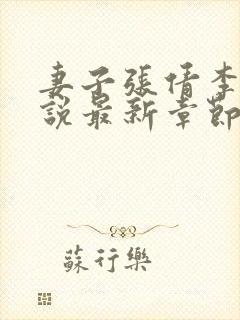 妻子張倩李
說最新章節
蘇行樂